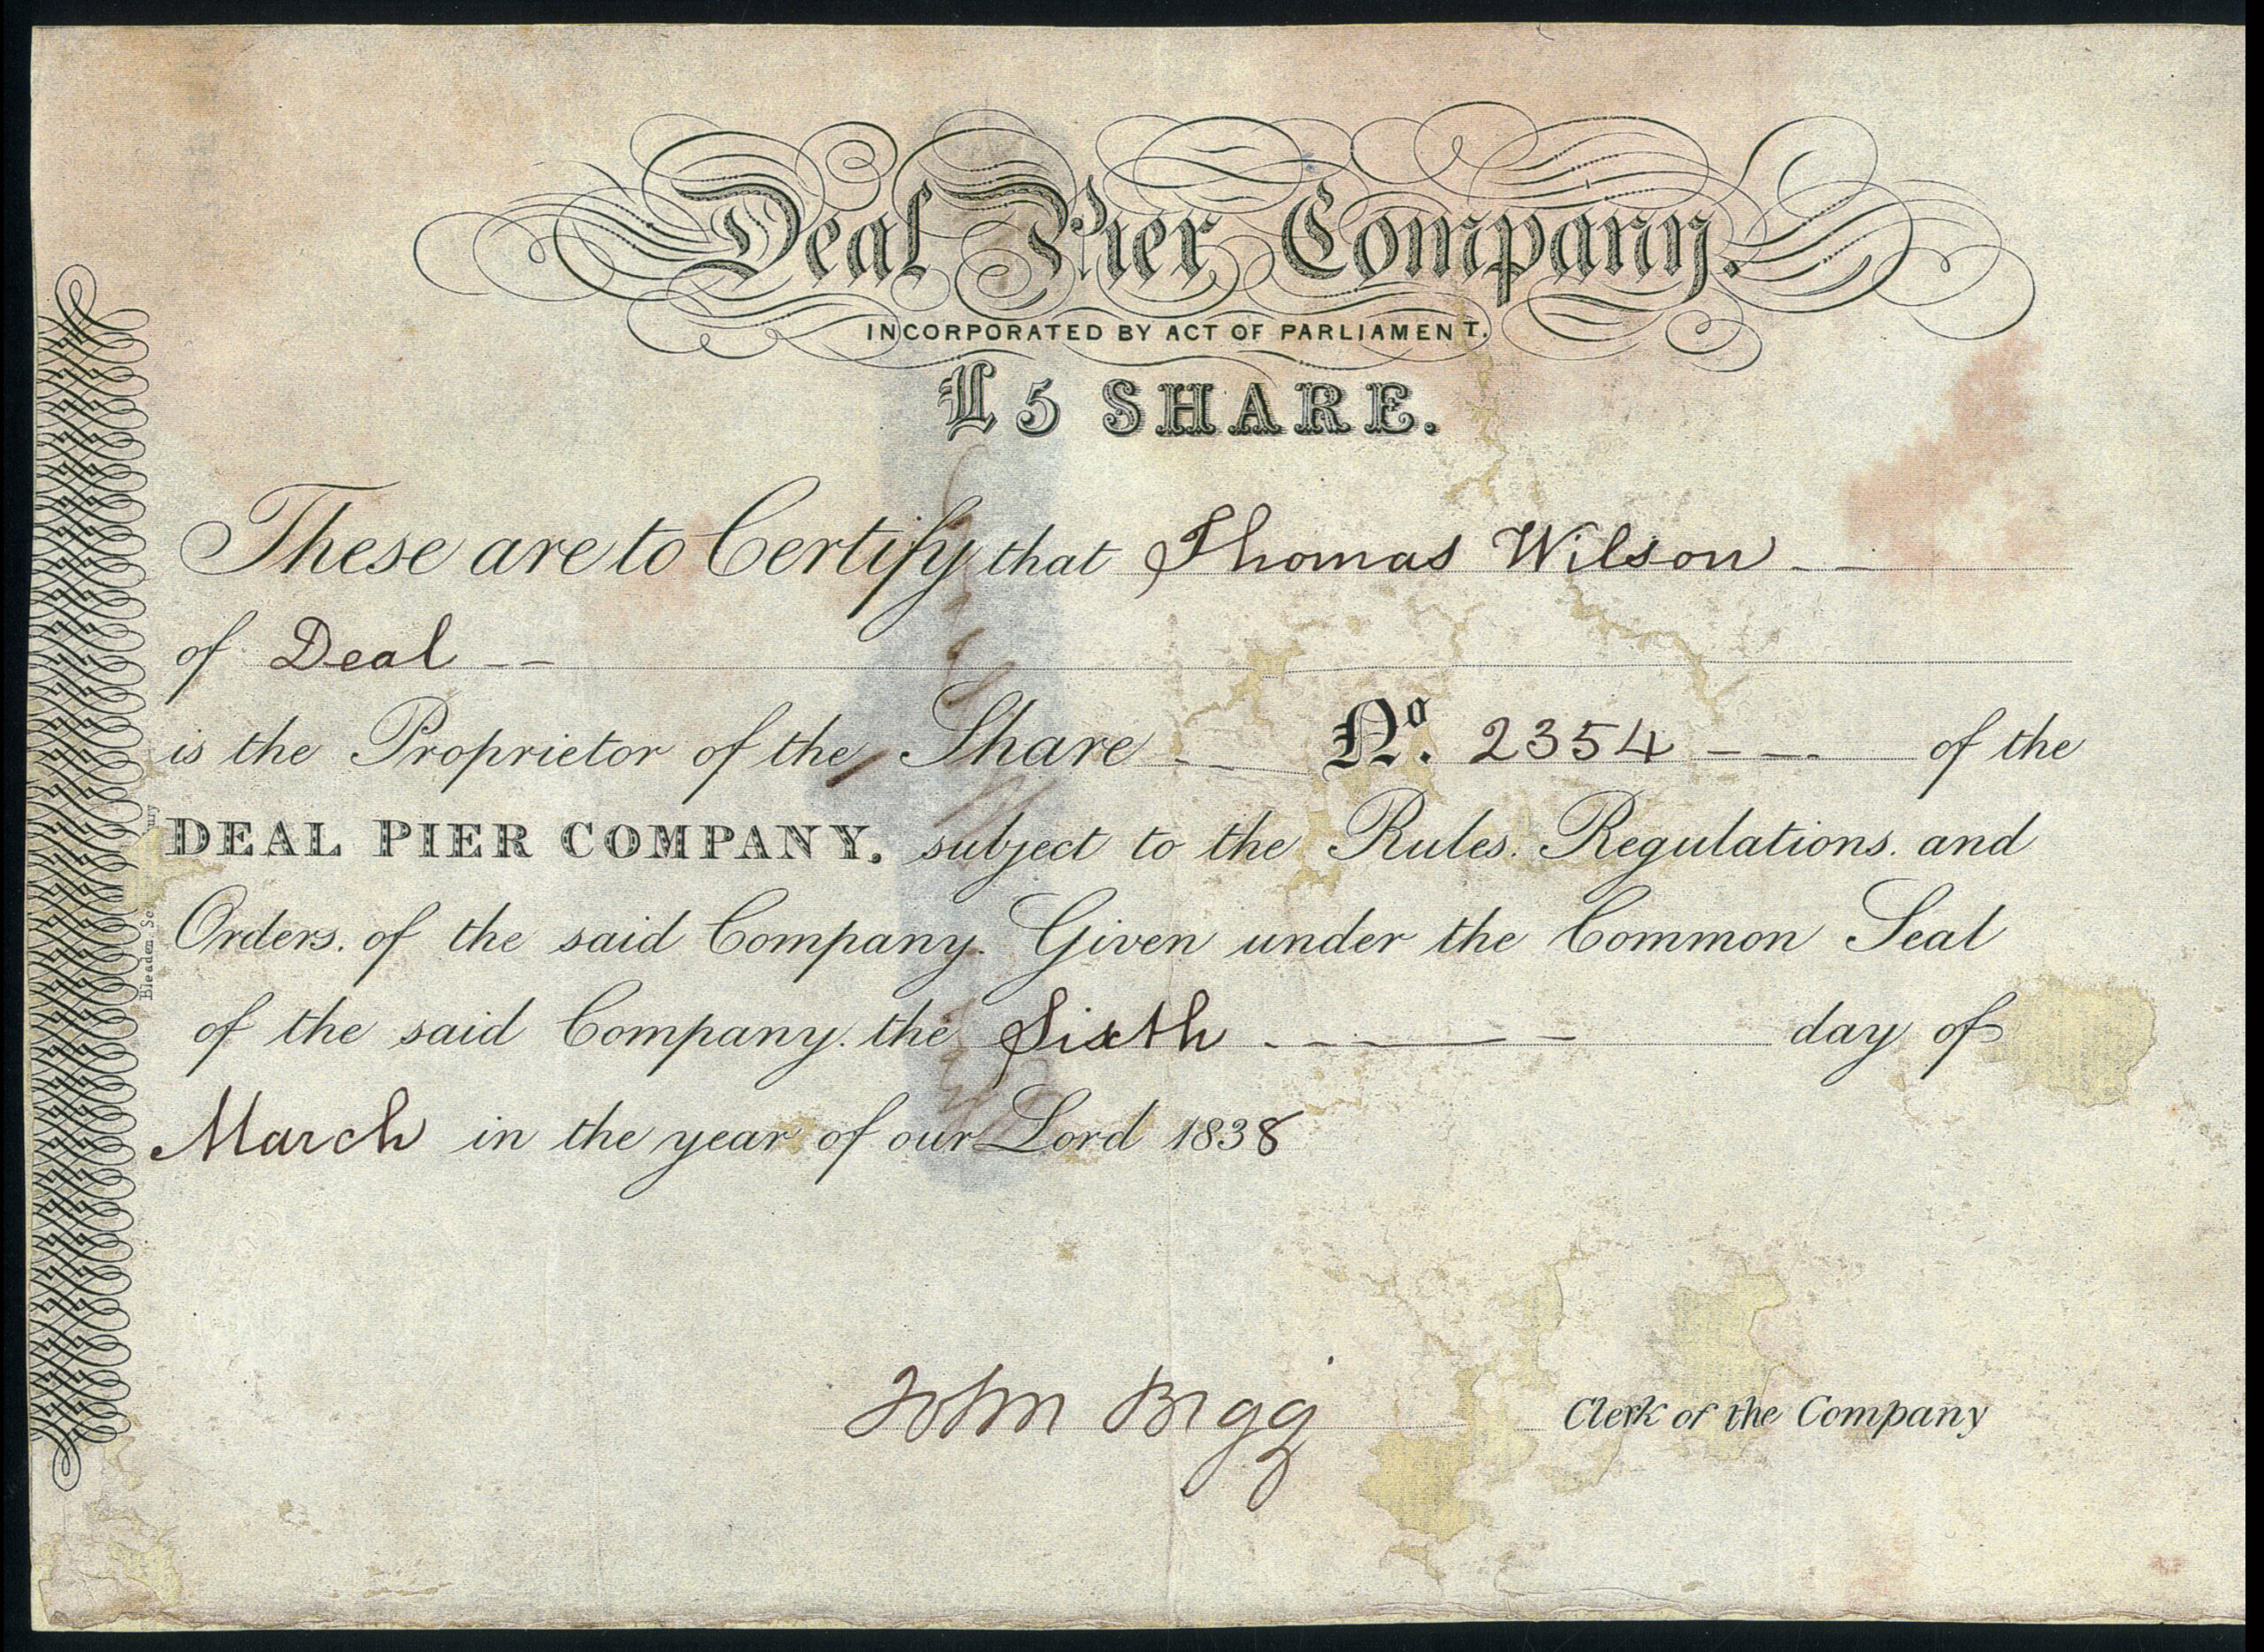 Deal Pier Company.
INCORPORATED BY ACT OF PARLIAMENT.
£5 SHARE.
These are to Certify that Thomas Wilson
of Deal
is the Proprietor of the Share No. 2354 of the
DEAL PIER COMPANY. subject to the Rules. Regulations. and
Orders. of the said Company. Given under the Common Seal
of the said Company. the Sixth day of
March in the year of our Lord 1838
John Bigg Clerk of the Company
Bleaden Sc